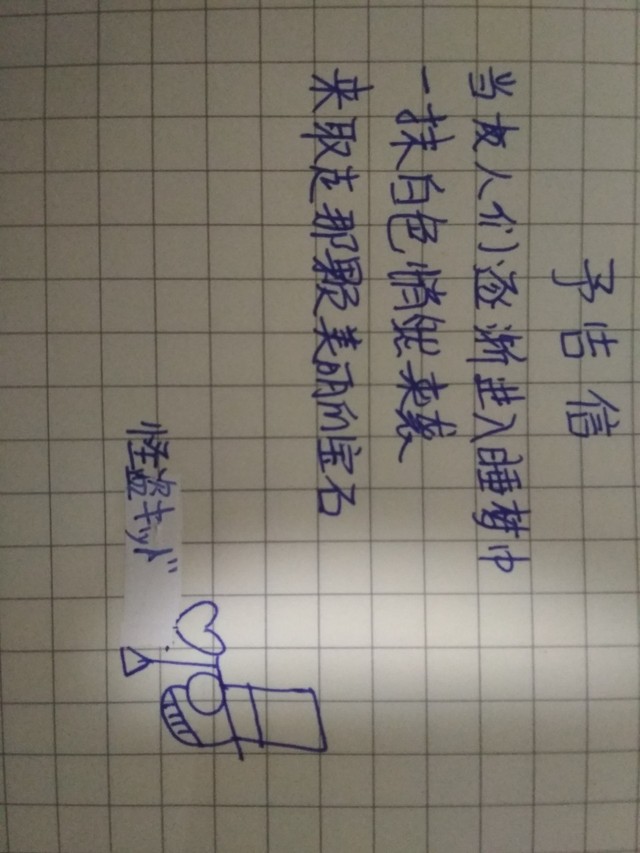 予告信
当友人们逐渐进入睡梦中
一抹白色悄然来袭
来取走那颗美丽的宝石
怪盗キッド